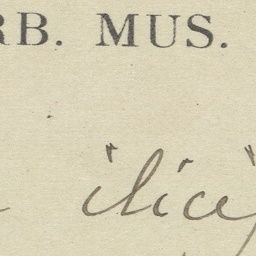 RB. MUS.
ilici